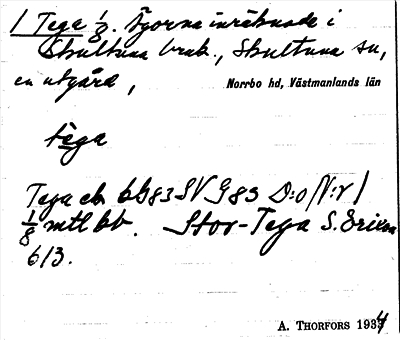 1 Tega 1/8. Ägorna inräknade i
Skultuna bruk., Skultuna sn,
en utgård, Norrbo hd, Västmanlands län
tega
Tega eb bG83SV G83 D:o/V:r/
1/8 mtl bb. Stor-Tega S. Erixon
613.
A. THORFORS 1934